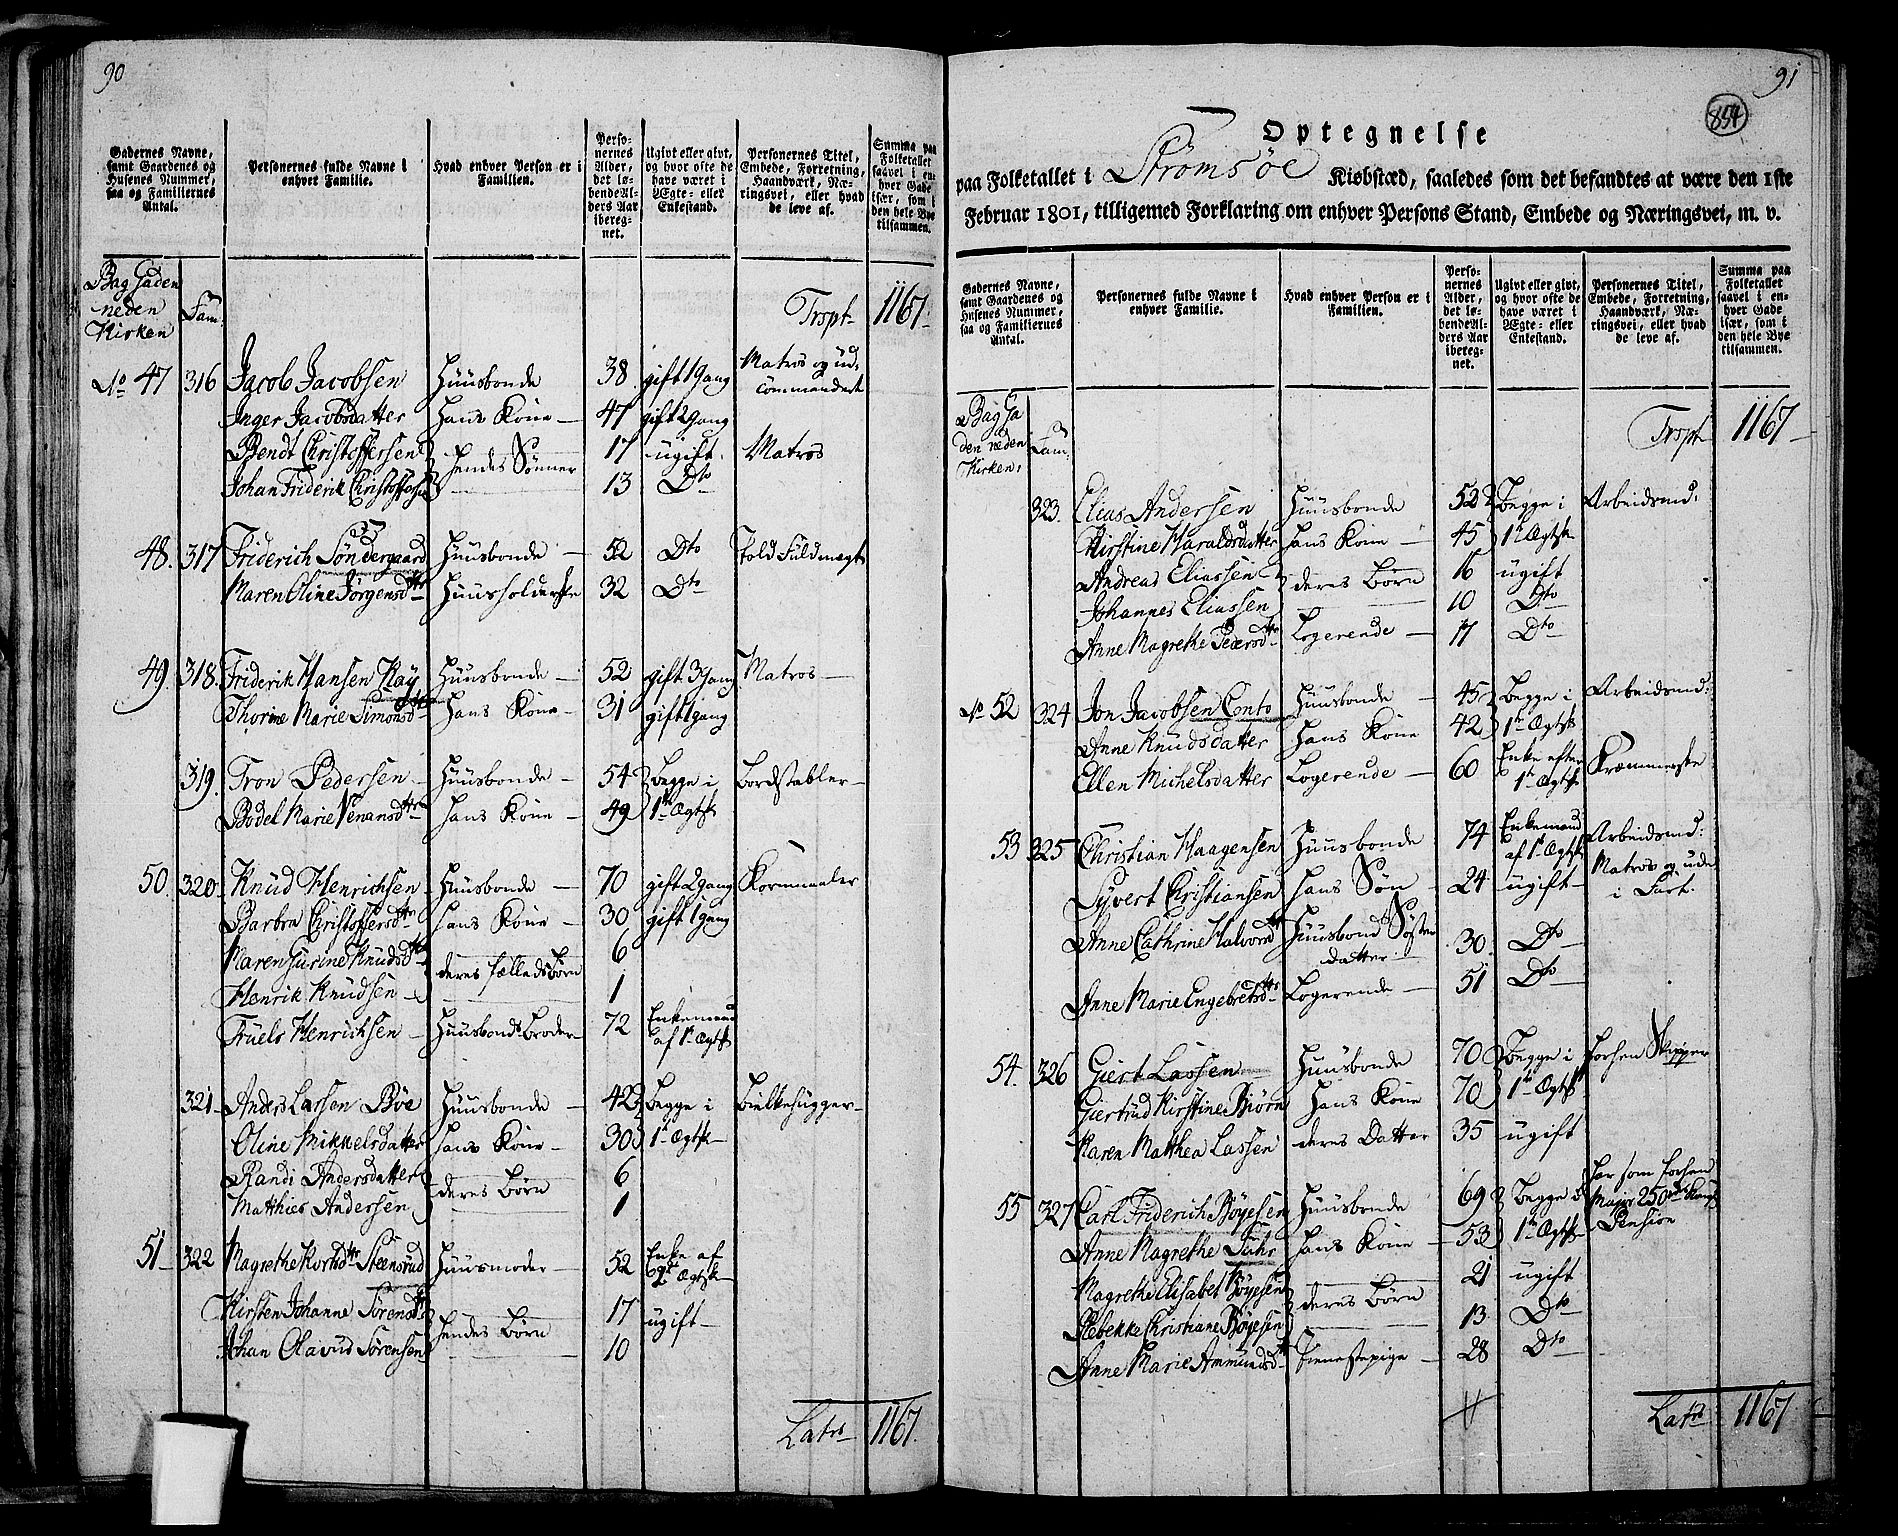 90
Gadernes Navne, samt Gaardenes og Husenes Nummer, saa og Familiernes Antal.
Personernes fulde Navne i enhver Familie.
Hvad enhver Person er i Familien.
Personernes Alder, det løbende Alders Aar iberegnet.
Ugivt eller givt, og hvor ofte de have været i Ægte- eller Enkestand.
Personernes Titel, Embede, Forretning, Haandværk, Næringsvei, eller hvad de leve af.
Summa paa Folketallet saavel i enhver Gade især, som i den hele Bye tilsammen.
Bag Gaden neden Kirken Fam: Trspt 1167
No 47 316 Jacob Jacobsen Huusbonde 38 gift 1 Gang Matros og udcommandert
Inger Jacobsdatter Hans Kone 47 gift 2 gang
Bendt Christoffersen hendes Sønner 17 ugift Matros
Johan Friderik Christoffersen 13 Dto
48. 317 Friderich Søndergaard Huusbonde 52 Dto Told Fuldmægt
Maren Oline Jørgensdtr Huusholderske 32 Dto
49. 318. Friderik Hansen Kay Huusbonde 52 gift 3 Gang Matros
Thorine Marie Simonsdtr Hans Kone 31 gift 1 gang
319. Tron Pedersen Huusbonde 54 Begge i Bordstabler
Bodel Marie Venansdtr Hans Kone 49 1te Ægtsk
50. 320 Knud Henrichsen Huusbonde 70 gift 2 gang Kornmaaler
Barbra Christoffersdtr Hans Kone 30 gift 1 gang
Maren Surine Knudsdtr deres fælleds Børn 6
Henrik Knudsen 1
Truels Henrichsen Huusbonds Broder 72 Enkemand af 1te Ægtsk
321 Anders Larsen Bøe Huusbonde 42 Begge i Bielkehugger
Oline Mikkelsdatter Hans Kone 30 1te Ægtsk
Randi Andersdatter deres Børn 6
Matthies Andersen 1
51 322 Magrethe Kortsdtr Steensrud Huusmoder 52 Enke af 2det Ægtsk
Kirsten Johanne Sørensdtr hendes Børn 17 ugift
Johan Olavus Sørensen 10
Latrs 1167.
91
854
Optegnelse
paa Folketallet i Strømsøe Kiøbstæd, saaledes som det befandtes at være den 1ste
Februar 1801, tilligemed Forklaring om enhver Persons Stand, Embede og Næringsvei, m. v.
Gadernes Navne, samt Gaardenes og Husenes Nummer, saa og Familiernes Antal.
Personernes fulde Navne i enhver Familie.
Hvad enhver Person er i Familien.
Personernes Alder, det løbende Alders Aar iberegnet.
Ugivt eller givt, og hvor ofte de have været i Ægte- eller Enkestand.
Personernes Titel, Embede, Forretning, Haandværk, Næringsvei, eller hvad de leve af.
Summa paa Folketallet saavel i enhver Gade især, som i den hele Bye tilsammen.
Bag Gaden neden Kirken, Fam: Trspt 1167
323. Elias Andersen Huusbonde 52 Begge i Arbeidsmd:
Kirstine Haraldsdatter Hans Kone 45 1te Ægtsk
Andreas Eliassen deres Børn 16 ugift
Johannes Eliassen 10 Dto
Anne Magrethe Pedersdtr Logerende 17 Dto
No 52 324 Jon Jacobsen Conto Huusbonde 45 Begge i Arbeidsmd:
Anne Knudsdatter Hans Kone 42 1te Ægtsk
Ellen Michelsdatter Logerende 60 Enke efter 1te Ægtsk Kræmmerske
53 325 Christian Haagensen Huusbonde 74 Enkemand af 1te Ægtsk Arbeidsmd:
Syvert Christiansen Hans Søn 24 ugift Matros og ude i Fart.
Anne Cathrine Halvorsdtr Huusbond Søster datter 30 Dto
Anne Marie Engebretsdtr Logerende 51 Dto
54. 326 Giert Lassen Huusbonde 70 Begge i forhen Skipper
Giertrud Kirstine Biørn Hans Kone 70 1te Ægtsk
Karen Matthea Lassen deres Datter 35 ugift
55 327 Carl Friderich Bøyesen Huusbonde 69 Begge i har som forhen Major 250 Pension
Anne Magrethe Suhr Hans Kone 53 1te Ægtsk
Magrethe Elisabet Bøyesen deres Børn 21 ugift
Rebekke Christiane Bøyesen 13 Dto
Anne Marie Ammundsdtr Tienestepige 28 Dto
Latrs 1167